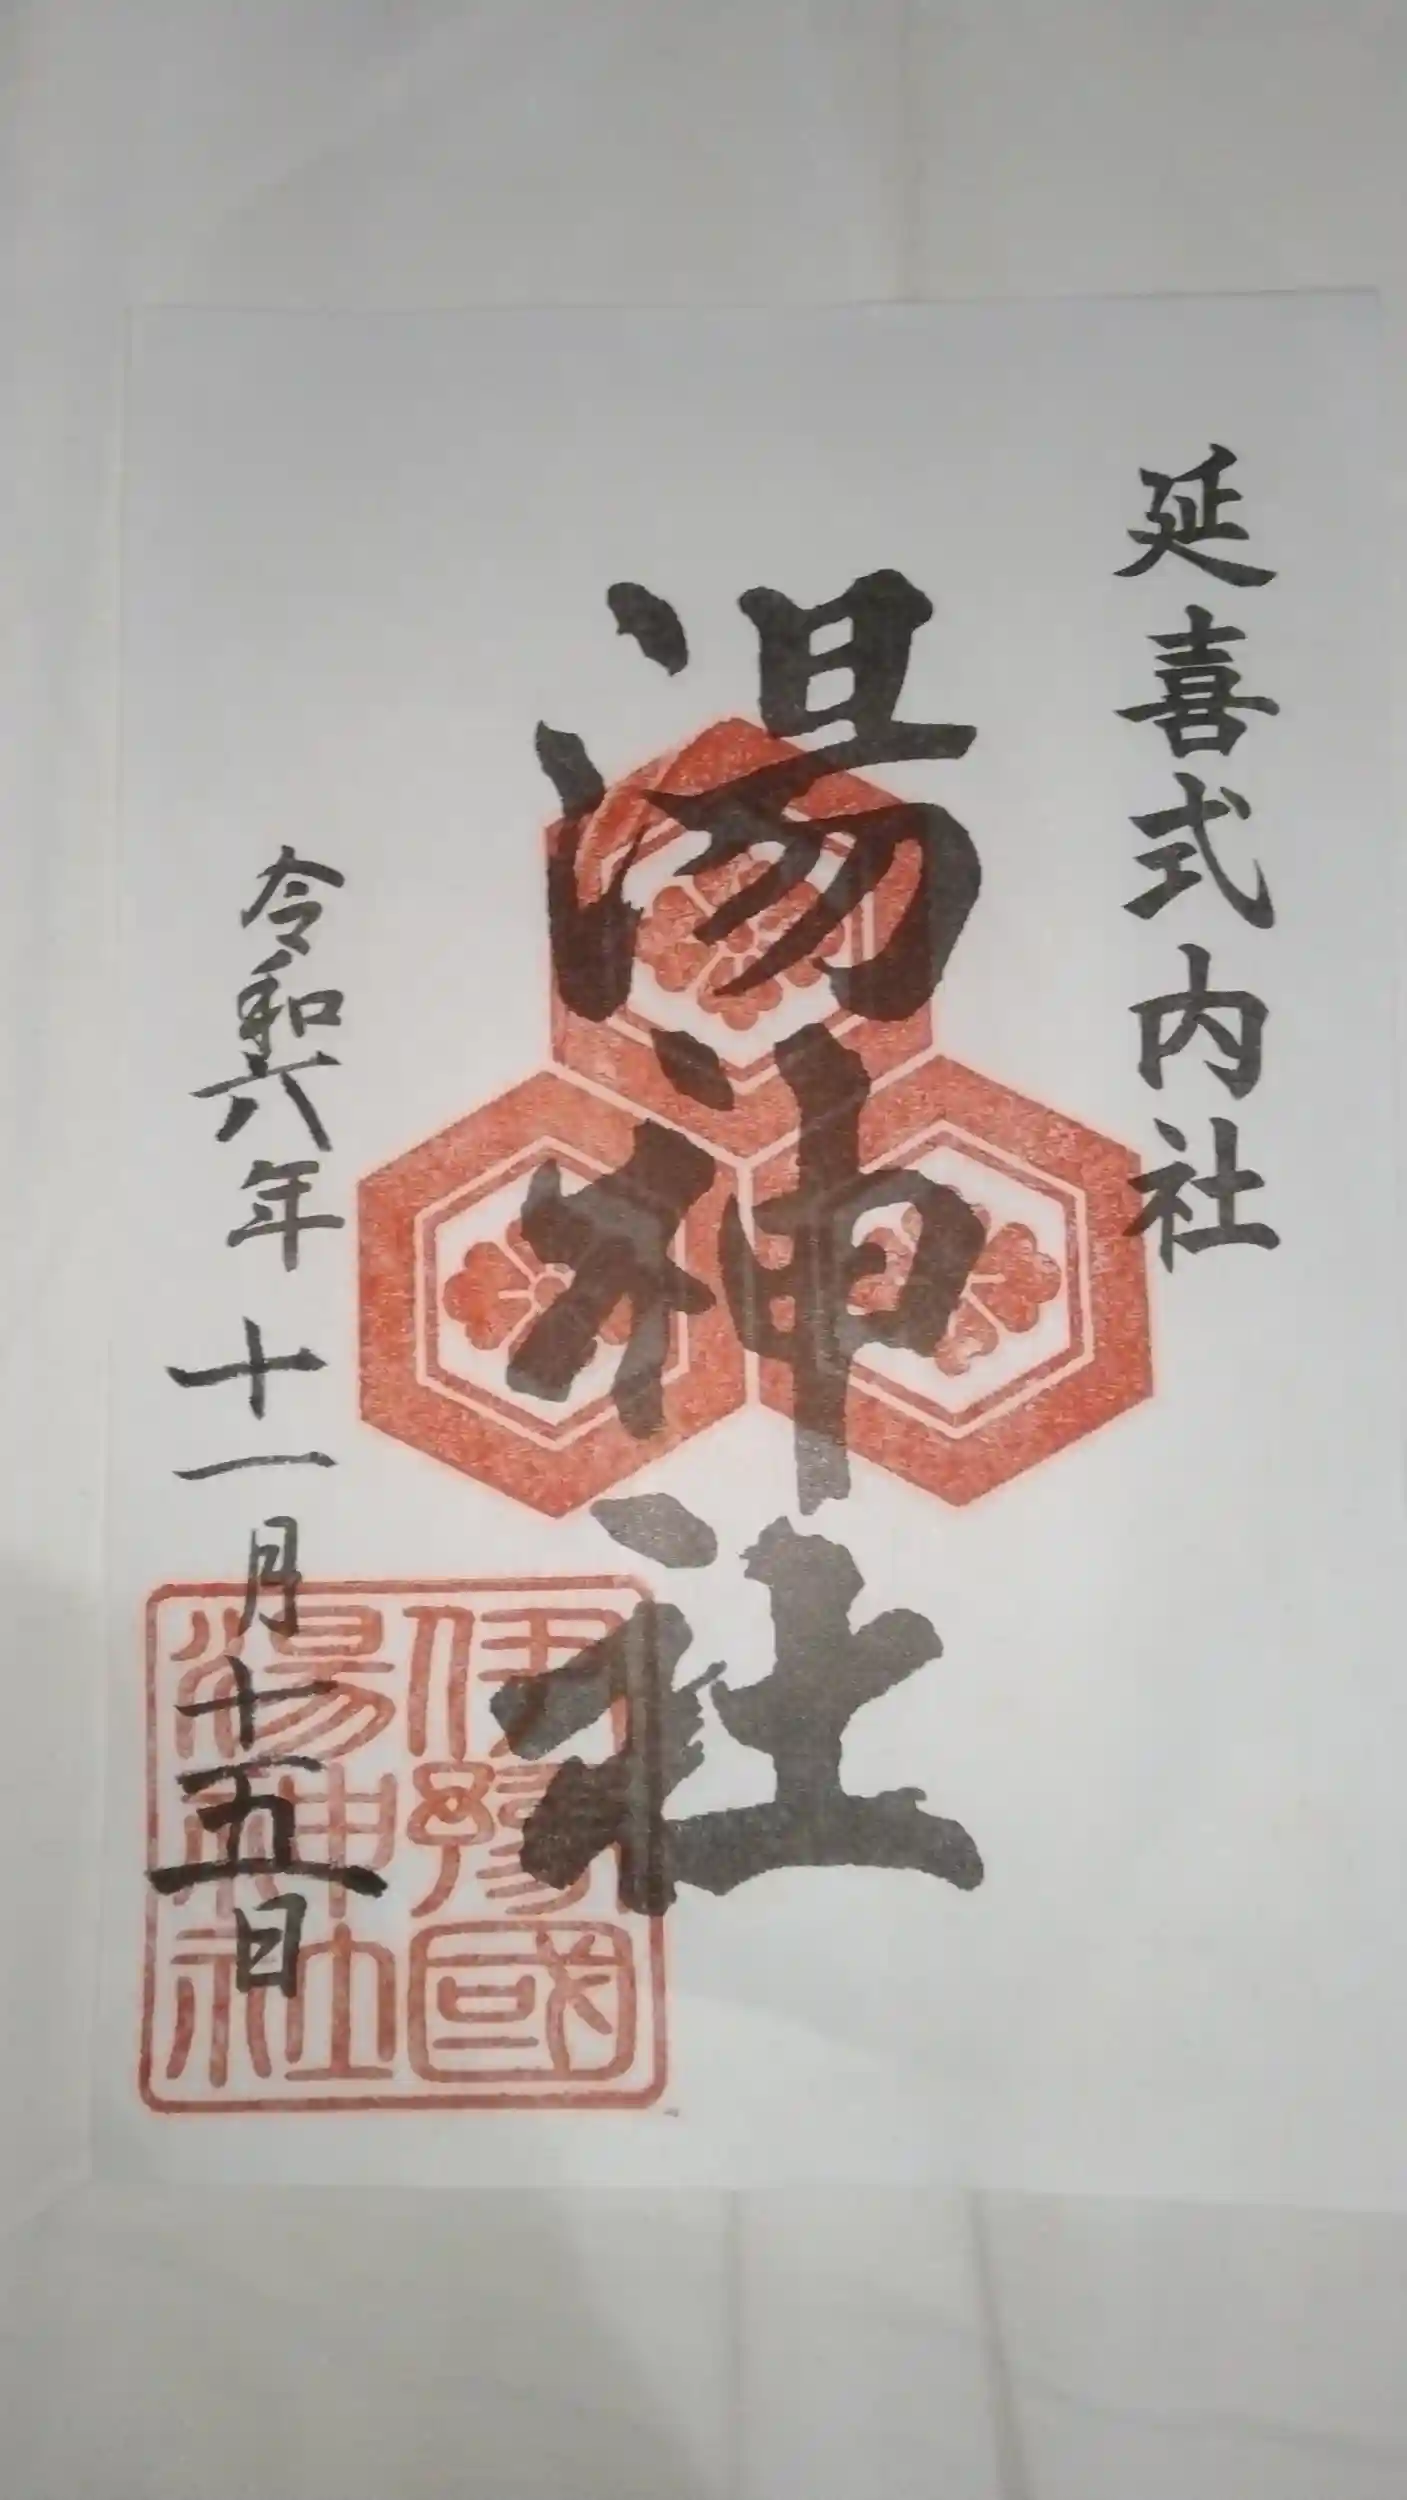 延喜式内社
湯神社
令和六年 十一月十五日
伊豫國
湯神社